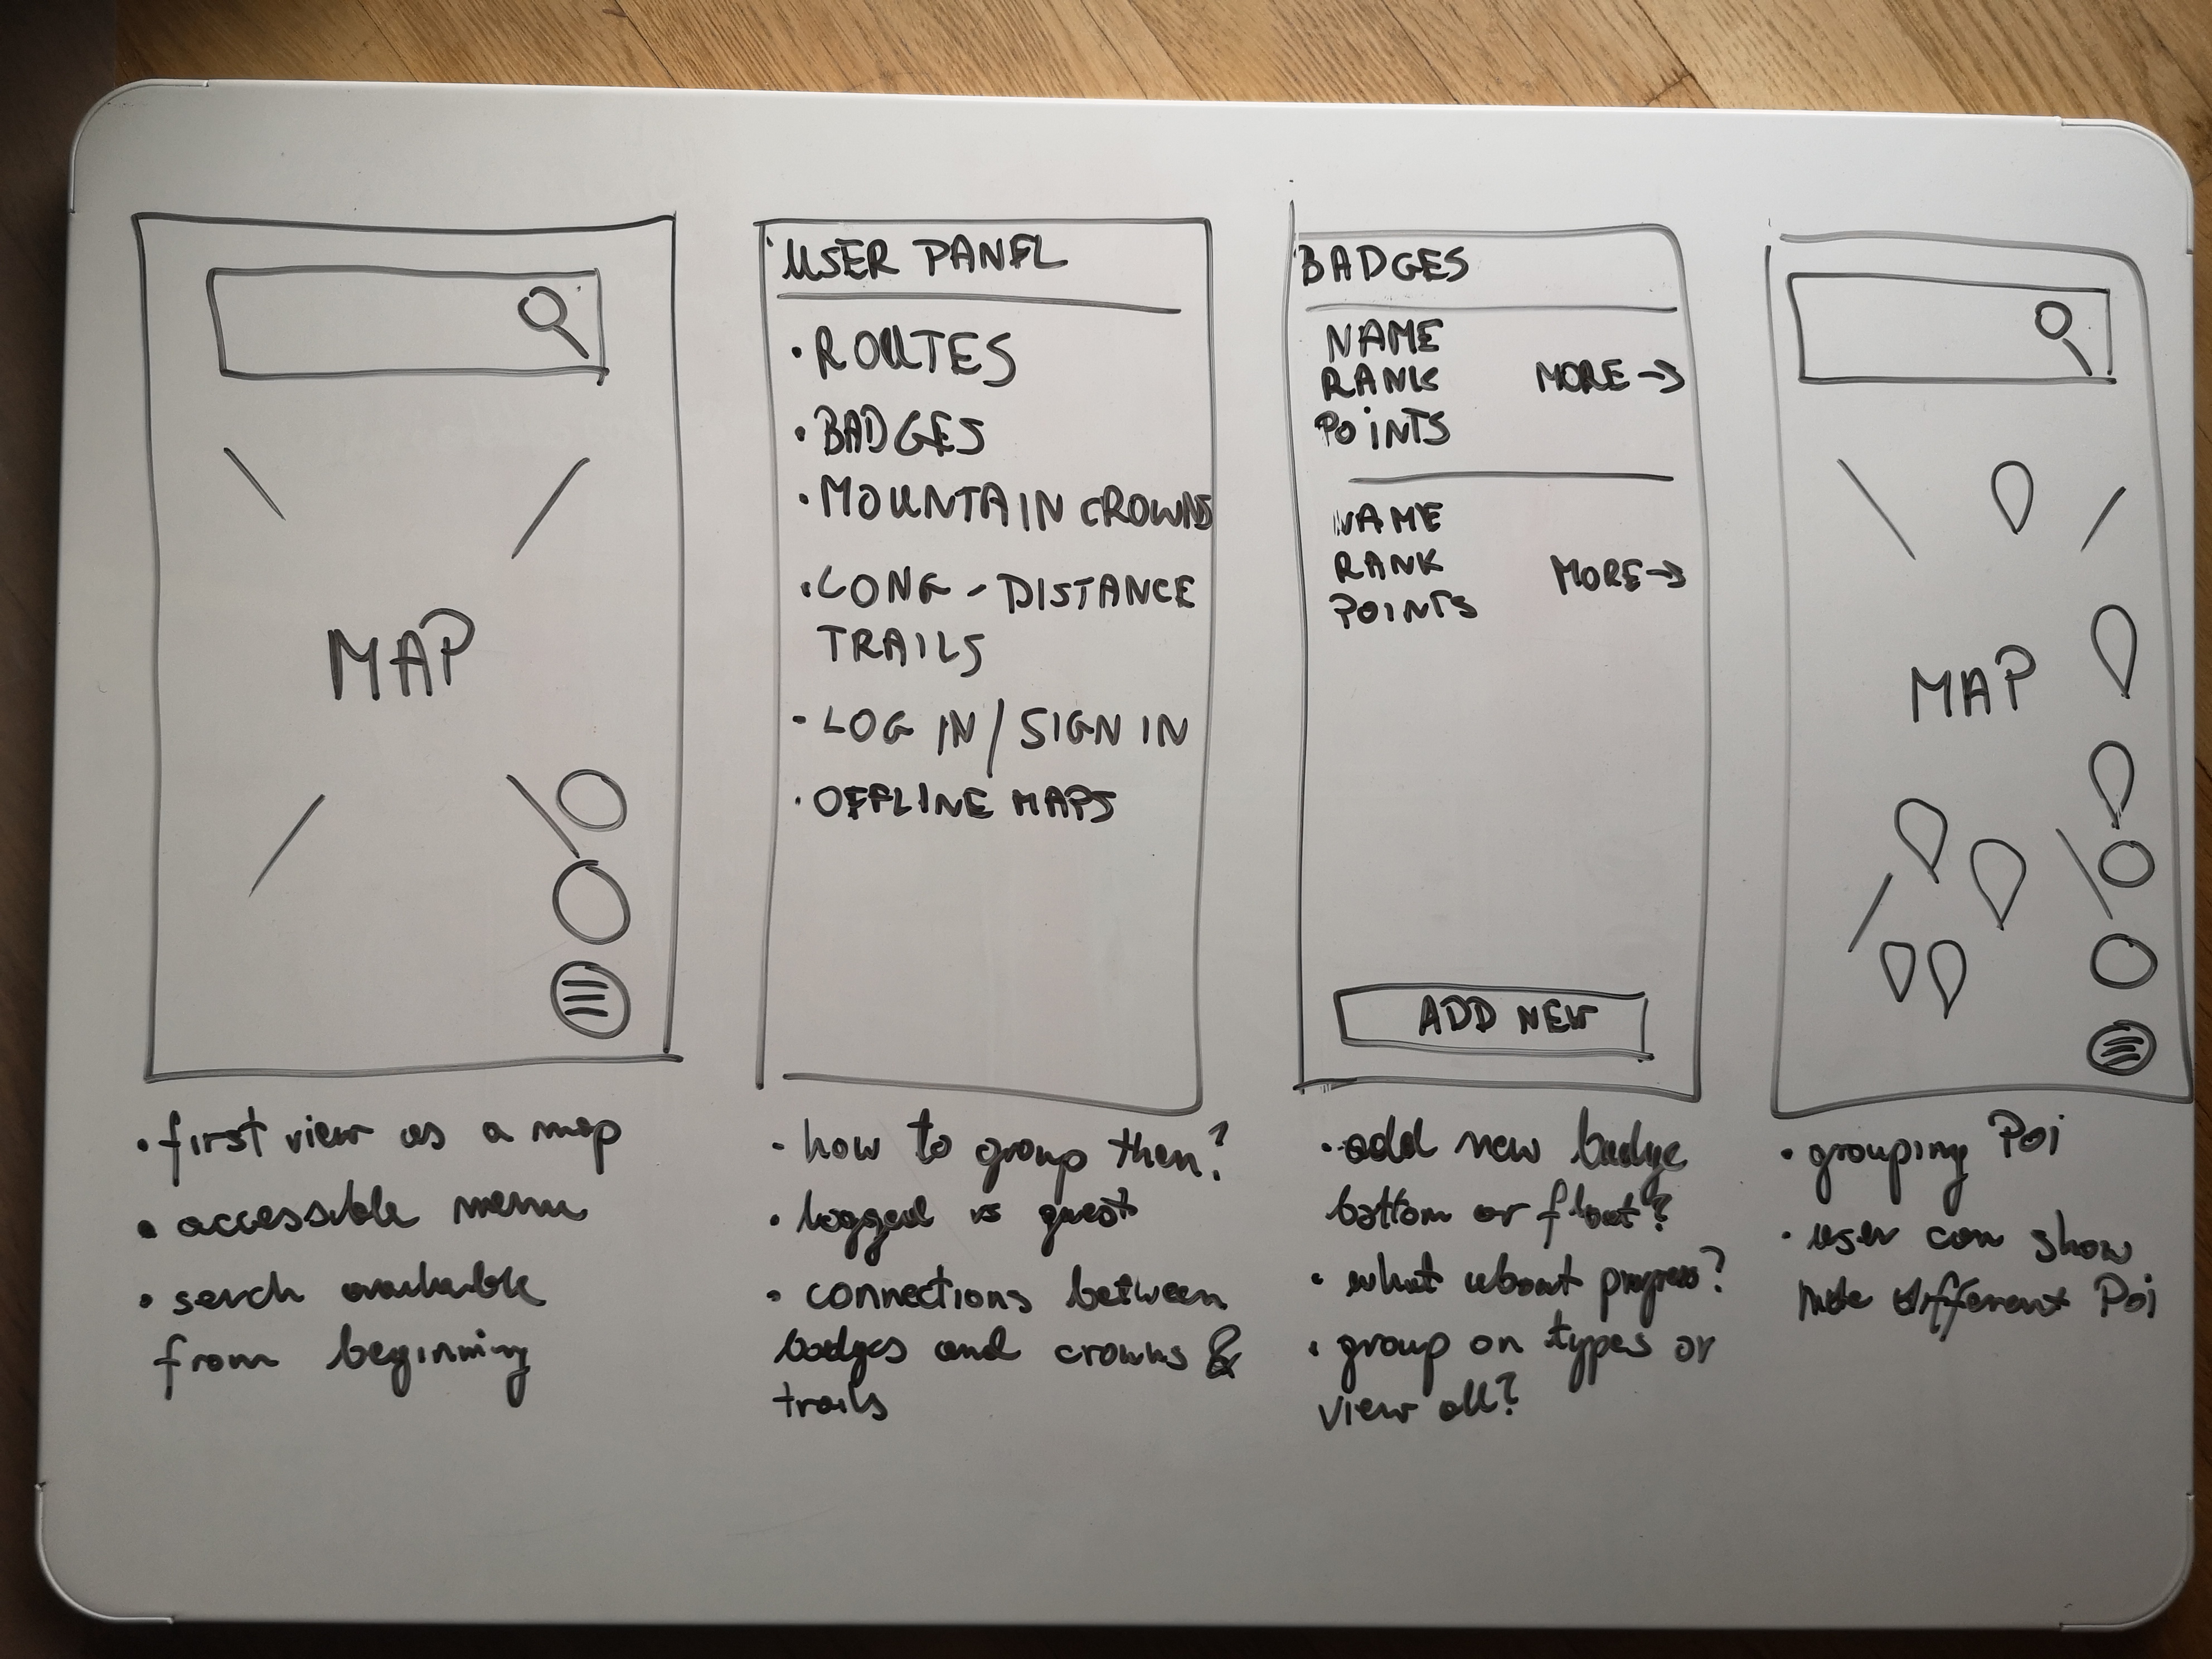 MAP
• first view as a map
• accessible menu
• serch available
from beginning
USER PANEL
• ROUTES
• BADGES
• MOUNTAIN CROWNS
• LONG-DISTANCE
TRAILS
• LOG IN / SIGN IN
• OFFLINE MAPS
• how to group them?
• logged vs guest
• connections between
badges and crowns &
trails
BADGES
NAME
RANK MORE →
POINTS
NAME
RANK MORE →
POINTS
ADD NEW
• add new badge
bottom or float?
• what about progress?
• group on types or
view all?
MAP
• grouping Poi
• user can show
hide different Poi